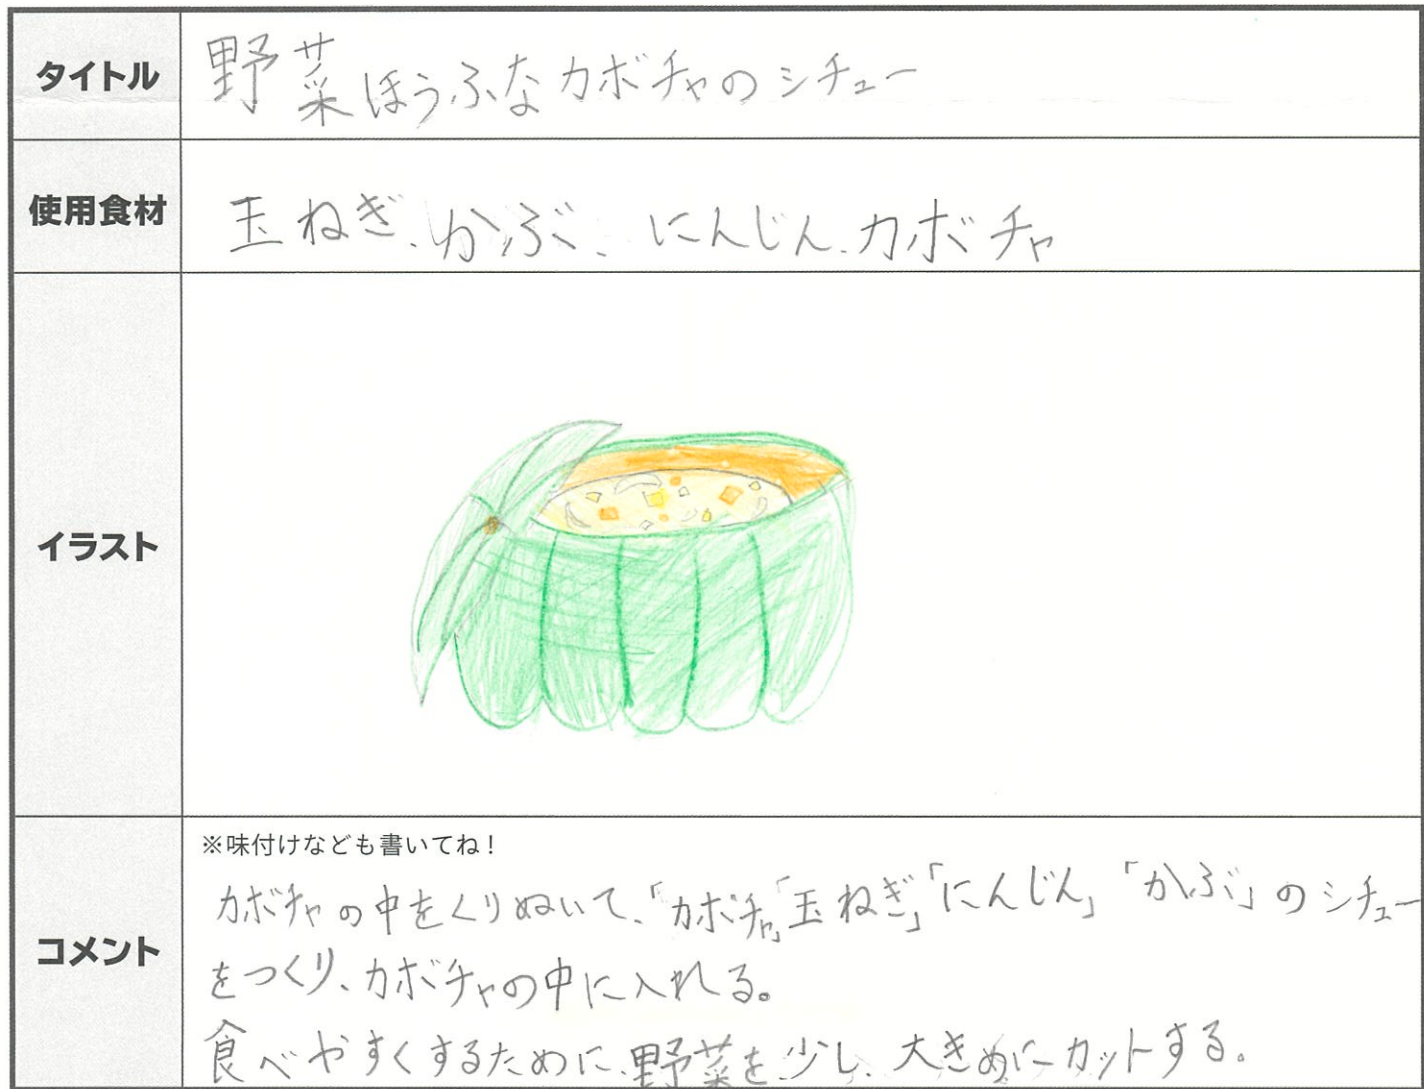 タイトル
野菜ほうふなカボチャのシチュー
使用食材
玉ねぎ、かぶ、にんじん、カボチャ
イラスト
コメント
※味付けなども書いてね！
カボチャの中をくりぬいて、「カボチャ」「玉ねぎ」「にんじん」「かぶ」のシチュー
をつくり、カボチャの中に入れる。
食べやすくするために、野菜を少し、大きめにカットする。